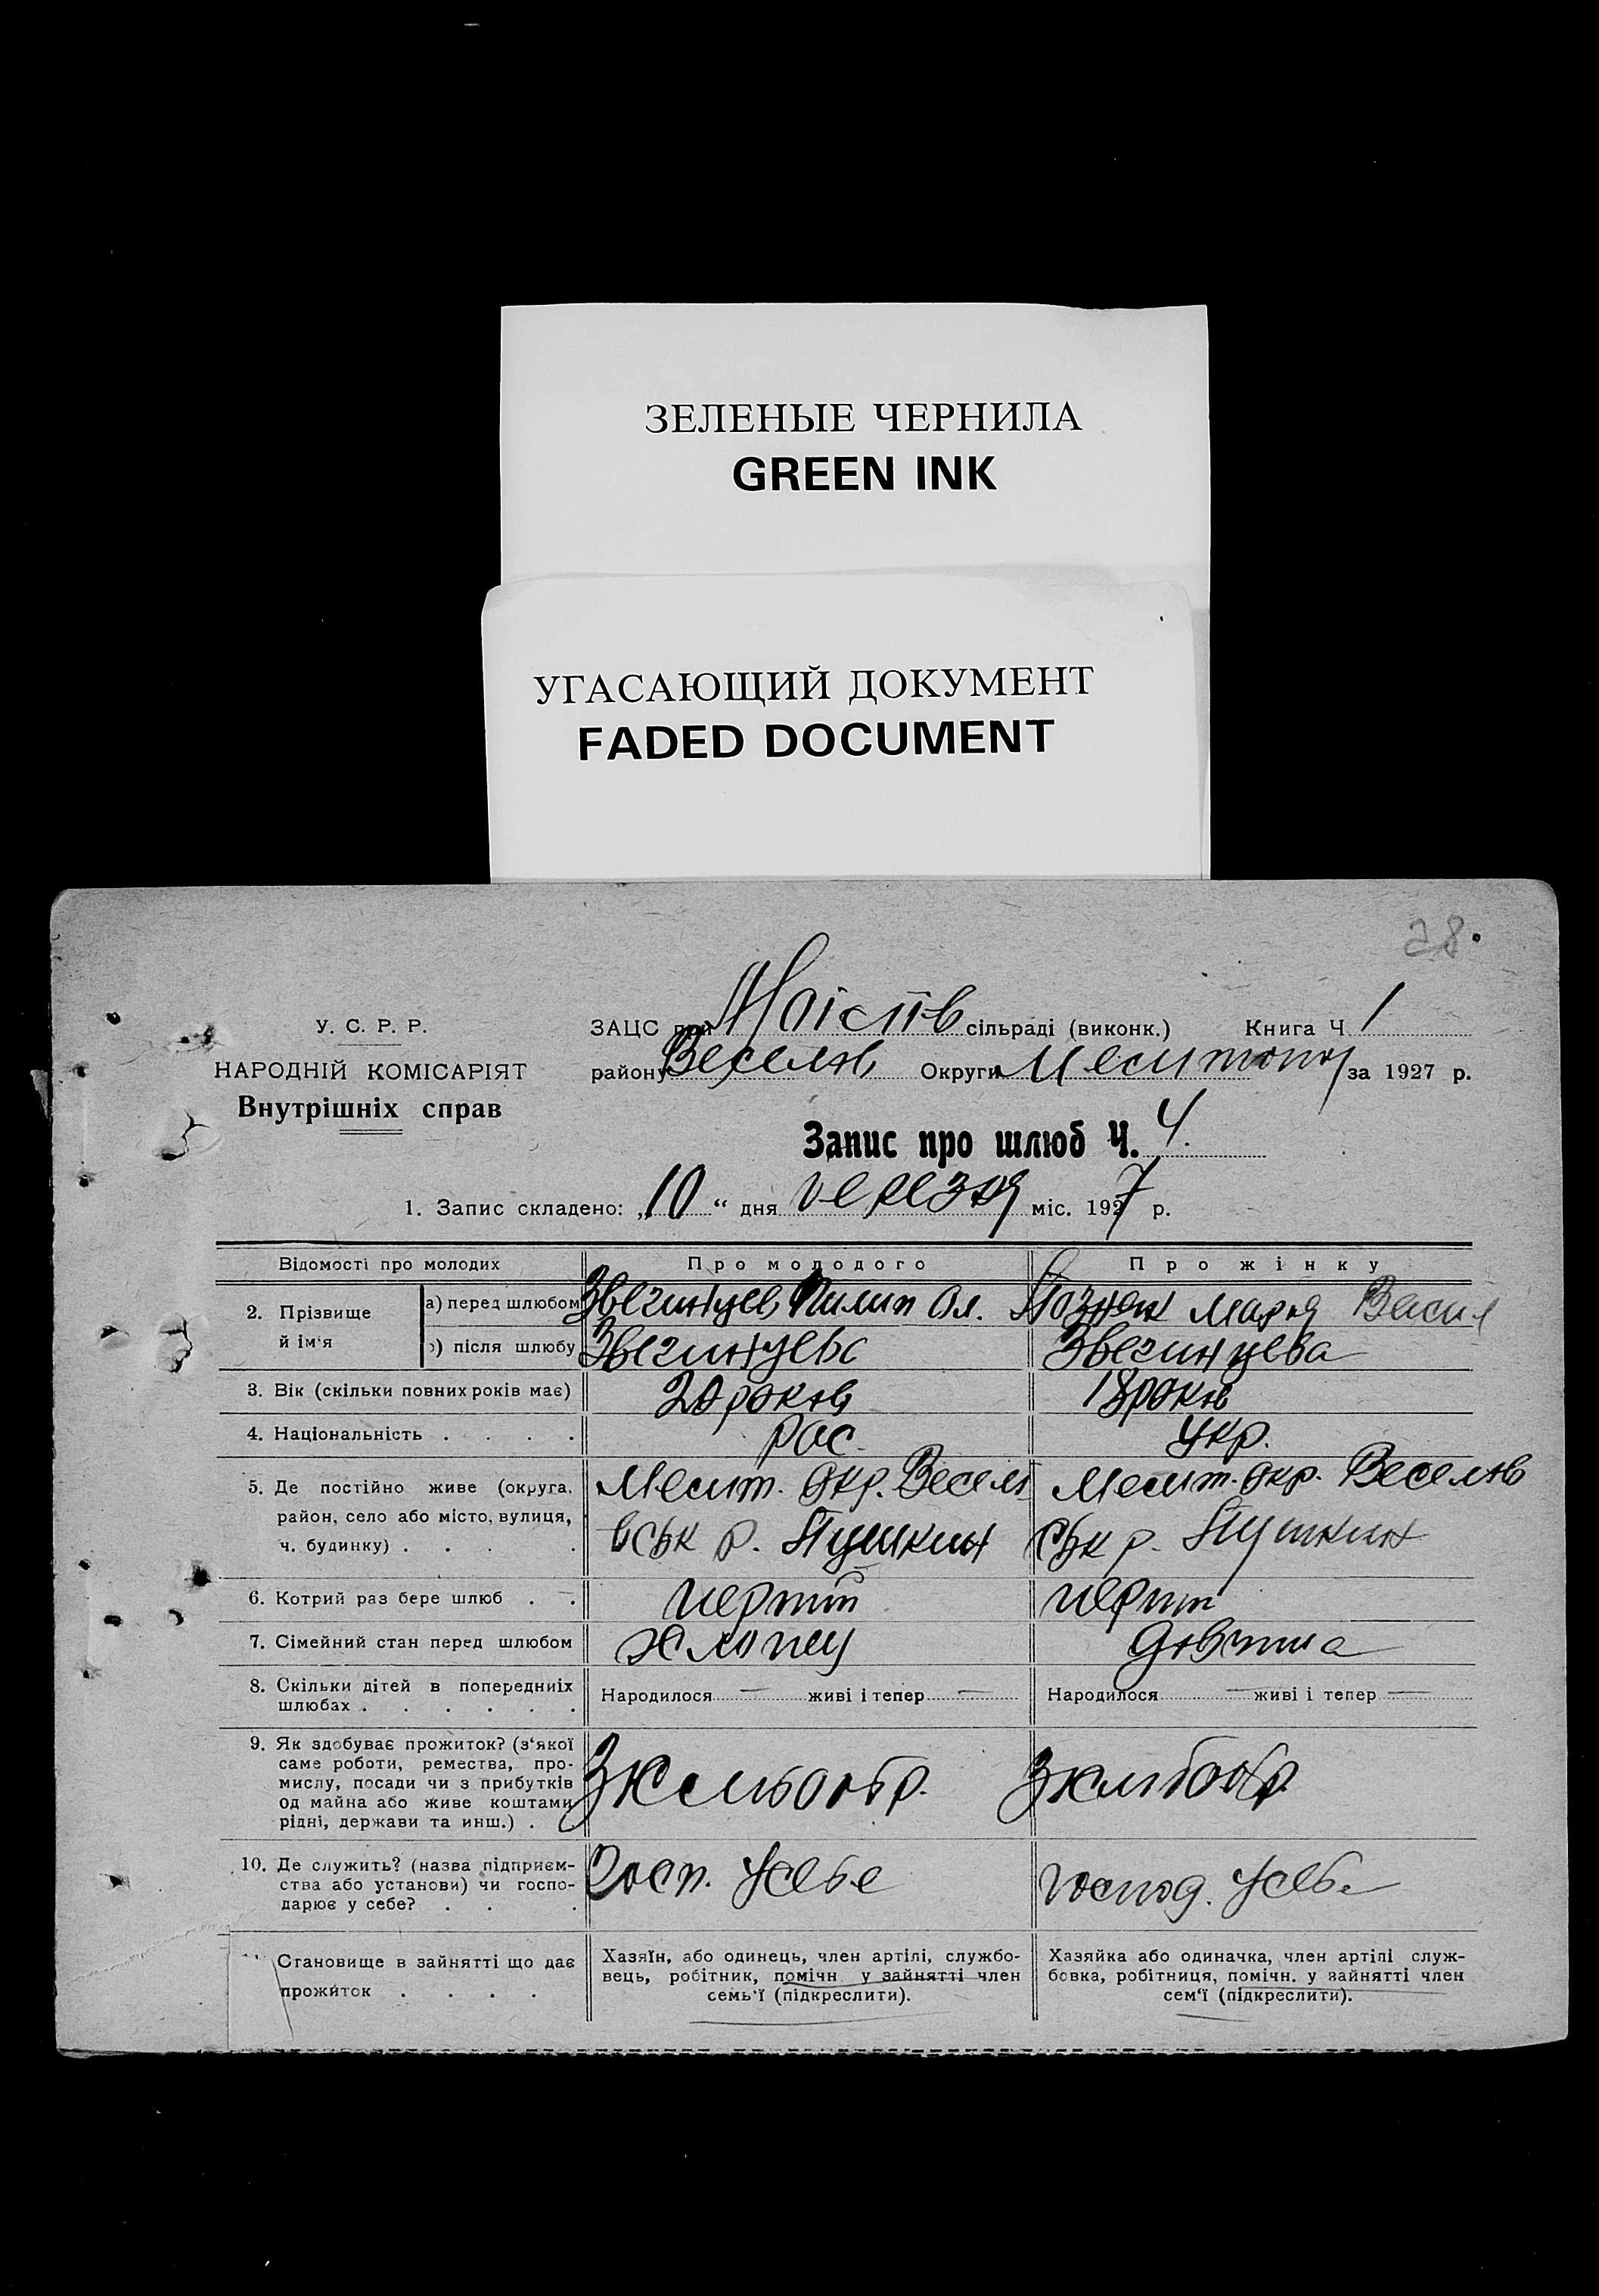 ЗЕЛЕНЫЕ ЧЕРНИЛА
GREEN INK
УГАСАЮЩИЙ ДОКУМЕНТ
FADED DOCUMENT
28.
У. С. Р. Р.
НАРОДНІЙ КОМІСАРІЯТ
Внутрішніх справ
ЗАЦС при сільраді (виконк.) Книга Ч 1
району Веселів Округи Мелитопол за 1927 р.
Запис про шлюб Ч. 4.
1. Запис складено: „10“ дня березня міс. 1927 р.
Відомості про молодих Про молодого Про жінку
2. Прізвище й ім'я а) перед шлюбом Звегинцев Пилип Ол. Позняк Мария Васил
б) після шлюбу Звегинцева Звегинцева
3. Вік (скільки повних років має) 20 років 18 років
4. Національність . . . . рос. укр.
5. Де постійно живе (округа, Мелит. Окр. Весели Мелит. окр. Веселів
район, село або місто, вулиця, вськ р. Пушкин ськ р. Пушкин
ч. будинку) . . . .
6. Котрий раз бере шлюб . . перший перш
7. Сімейний стан перед шлюбом хлопец дівчина
8. Скільки дітей в попередниіх Народилося — живі і тепер — Народилося — живі і тепер —
шлюбах . . . . . .
9. Як здобуває прожиток? (з'якої
саме роботи, ремества, про-
мислу, посади чи з прибутків
од майна або живе коштами
рідні, держави та инш.) .
10. Де служить? (назва підприєм- Госп. у себе Господ. у себе
ства або установи) чи госпо-
дарює у себе? . . .
Становище в зайнятті що дає
прожиток . . . .
Хазяїн, або одинець, член артілі, службо-
вець, робітник, помічн у зайнятті член
семь'ї (підкреслити).
Хазяйка або одиначка, член артілі служ-
бовка, робітниця, помічн. у зайнятті член
сем'ї (підкреслити).